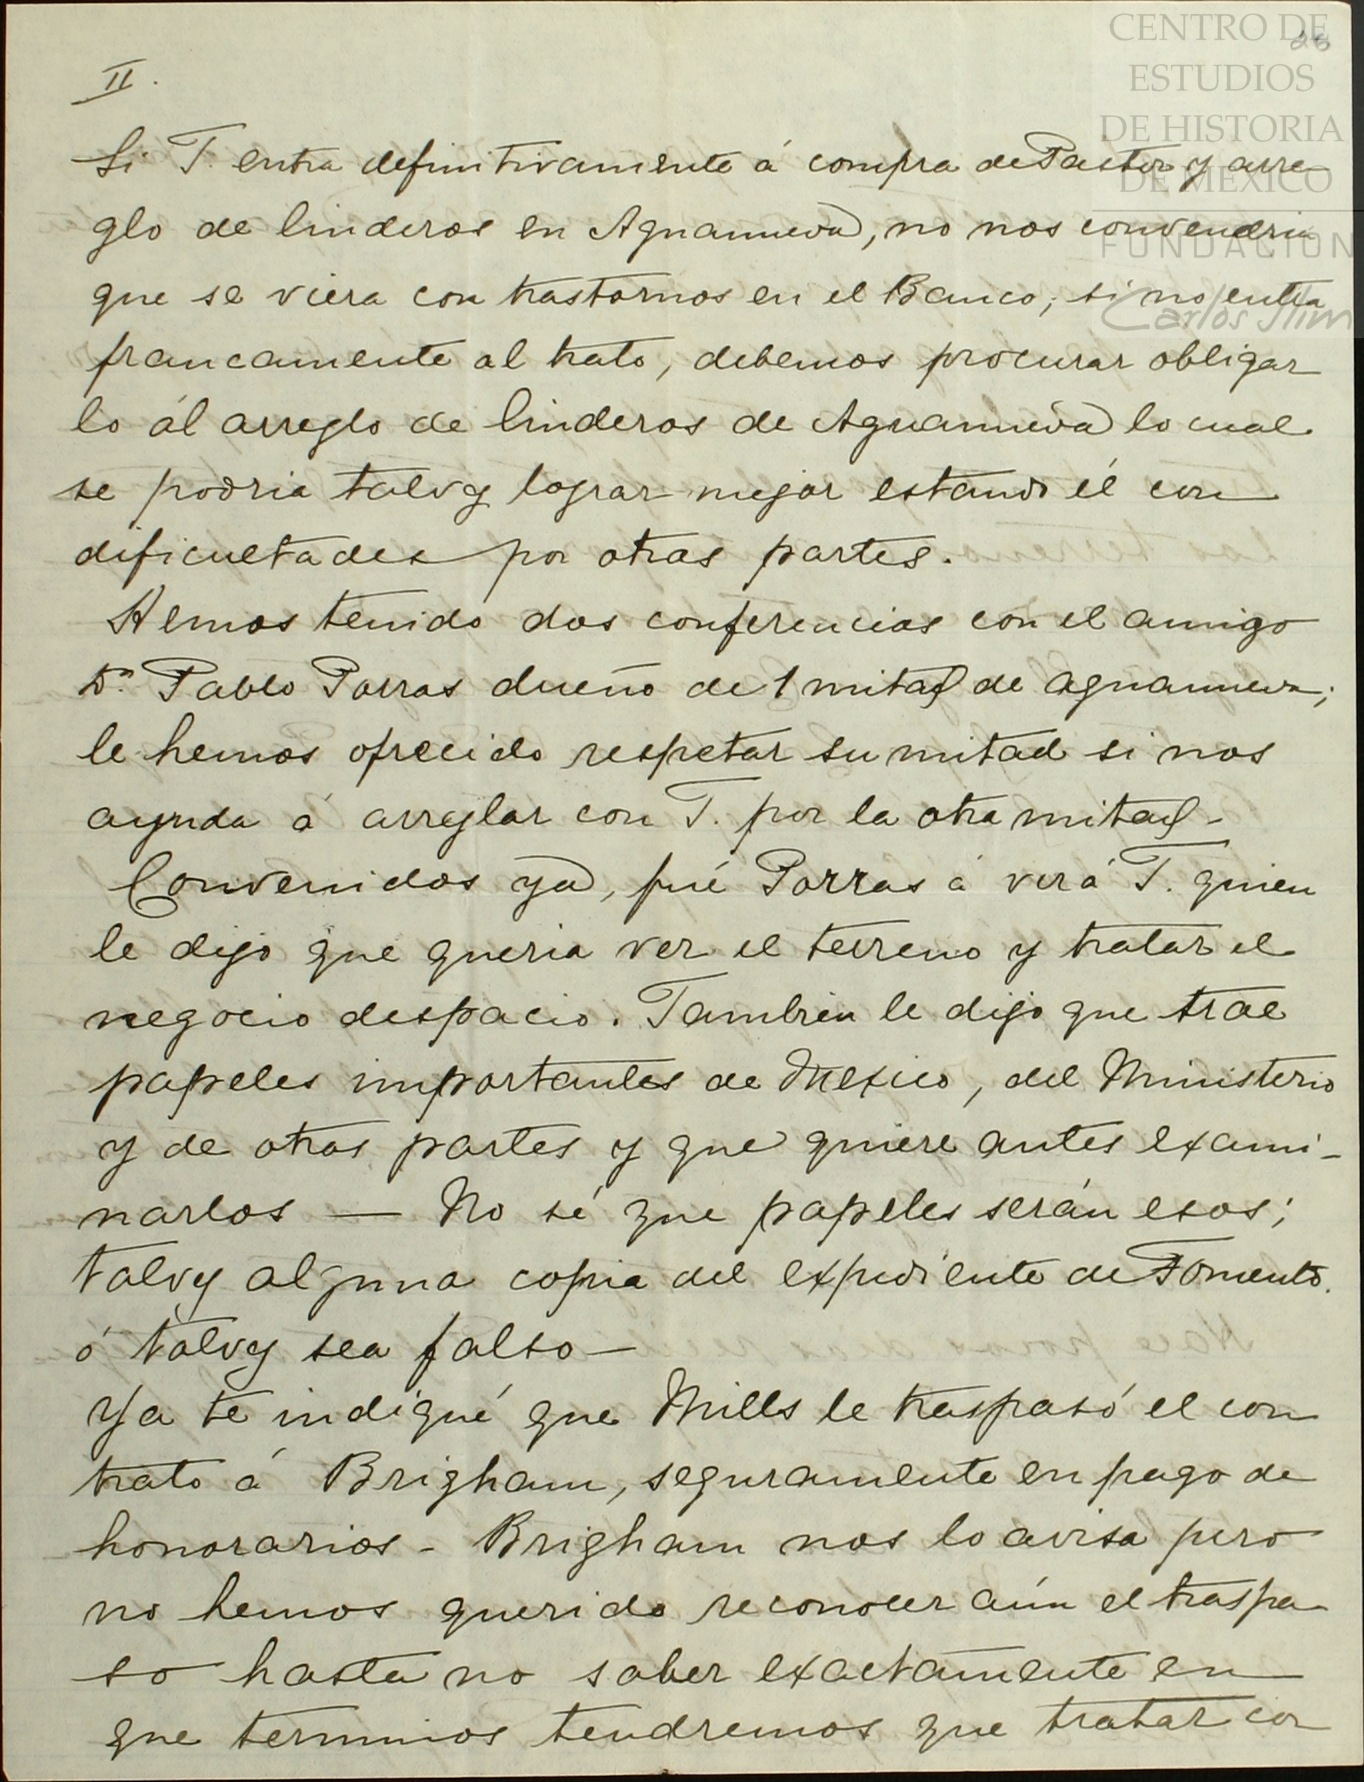 CENTRO DE
ESTUDIOS
DE HISTORIA
DE MÉXICO
FUNDACIÓN
Carlos Slim
28
II.
Si T. entra definitivamente á compra de Pastor y arre-
glo de linderos en Aguanueva, no nos convendria
que se viera con trastornos en el Banco; si no entra
francamente al trato, debemos procurar obligar
lo ál arreglo de linderos de Aguanueva lo cual
se podria talvez lograr mejor estando él con
dificultades por otras partes.
Hemos tenido dos conferencias con el amigo
Dn. Pablo Porras dueño de 1 mitad de Aguanueva;
le hemos ofrecido respetar su mitad si nos
ayuda á arreglar con T. por la otra mitad-
Convenidos ya, fué Porras á ver á T. quien
le dijo que queria ver el terreno y tratar el
negocio despacio. Tambien le dijo que trae
papeles importantes de Mexico, del Ministerio
y de otras partes y que quiere antes exami-
narlos — No sé que papeles serán esos;
talvez alguna copia del expediente de Fomento.
ó talvez sea falso—
Ya te indiqué que Mills le traspasó el con
trato á Brigham, seguramente en pago de
honorarios - Brigham nos lo avisa pero
no hemos querido reconocer aún el traspa
so hasta no saber exactamente en
que terminos tendremos que tratar con